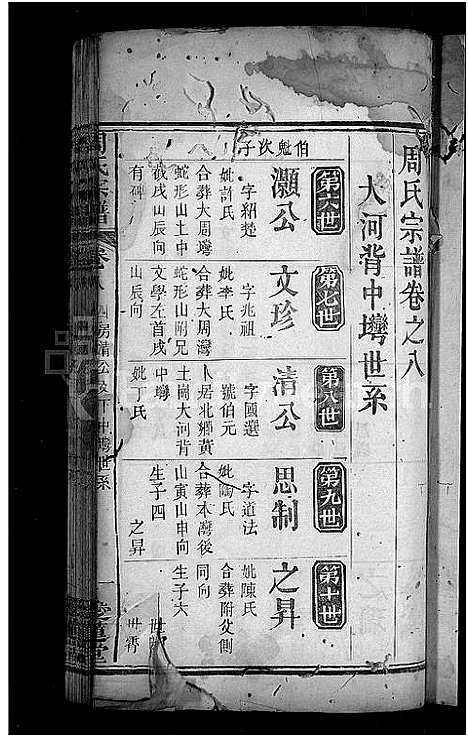 周氏宗譜卷之八
大河背中塆世系
第六世
伯魁次子
灝公
字紹楚
妣許氏
合葬大周塆
蛇形山土中
戌山辰向
有碑
第七世
文珍
字兆祖
妣李氏
合葬大周灣
蛇形山附兄
文學左首戌
山辰向
第八世
清公
字國選
號伯元
卜居北鄉黃
土崗大河背
中塆
妣丁氏
第九世
思制
字道法
妣陶氏
合葬本灣後
山寅山申向
生子四
之昇
第十世
之昇
妣陳氏
合葬附父側
同向
生子六
世霽
周氏宗譜
卷八